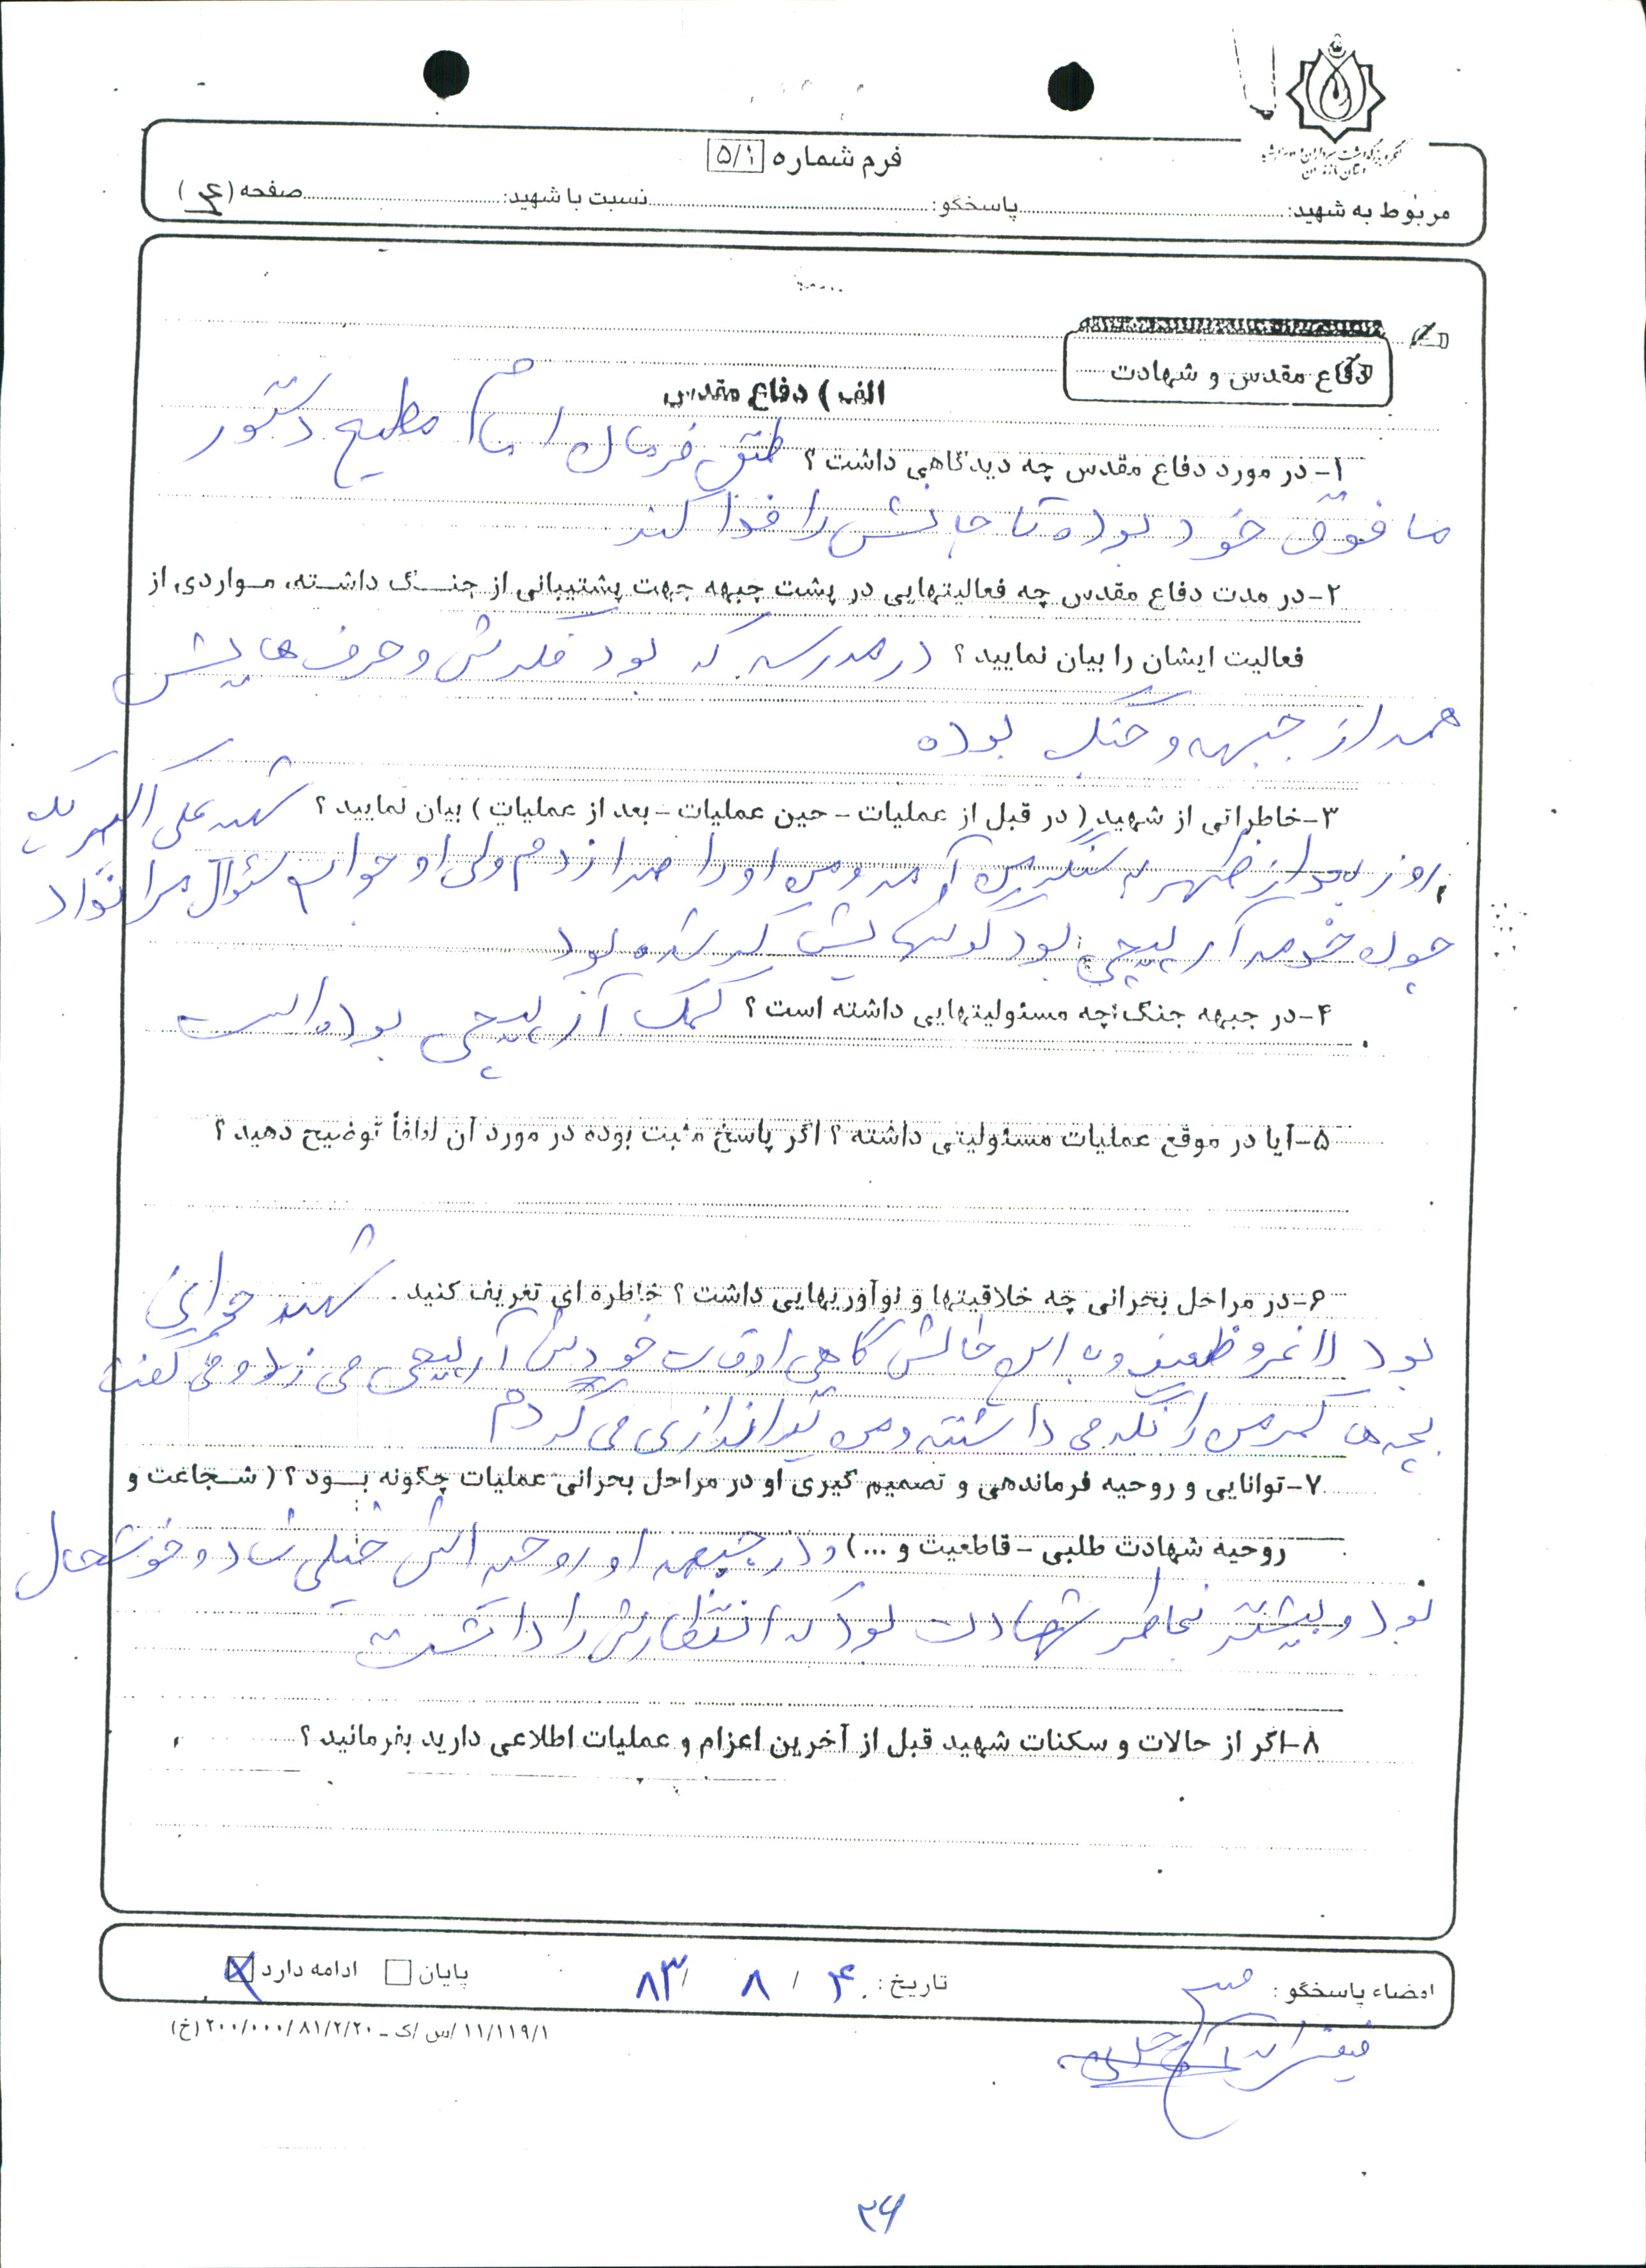 کنگره بزرگداشت سرداران و
استان مازندران
فرم شماره ۵/۱
مربوط به شهید: پاسخگو: نسبت با شهید: صفحه (۴)
دفاع مقدس و شهادت
الف) دفاع مقدس
۱- در مورد دفاع مقدس چه دیدگاهی داشت؟ طبق فرمان امام مطیع دستور
ما فوق خود بوده تا جانش را فدا کند
۲- در مدت دفاع مقدس چه فعالیتهایی در پشت جبهه جهت پشتیبانی از جنگ داشته، مواردی از
فعالیت ایشان را بیان نمایید؟ در مدرسه که بود فکرش و حرف هایش
همه از جبهه و جنگ بوده
۳- خاطراتی از شهید (در قبل از عملیات - حین عملیات - بعد از عملیات) بیان نمایید؟ شهید علی اکبر یک
روز بعد از ظهر به سنگر من آمد و من او را صدا زدم ولی او جواب سئوال مرا نداد
چون خدمه آر پی جی بود گوشهایش کر شده بود
۴- در جبهه جنگ چه مسئولیتهایی داشته است؟ کمک آر پی جی بوده است
۵- آیا در موقع عملیات مسئولیتی داشته؟ اگر پاسخ مثبت بوده در مورد آن لطفاً توضیح دهید؟
۶- در مراحل بحرانی چه خلاقیتها و نوآوریهایی داشت؟ خاطره ای تعریف کنید. شهید جوانی
بود لاغر و ظعیف و به این خاطرش گاهی اوقات خودش آر پی جی می زد و می گفت
بچه ها کمر من را نگه می داشتند و من تیراندازی می کردم
۷- توانایی و روحیه فرماندهی و تصمیم گیری او در مراحل بحرانی عملیات چگونه بود؟ (شجاعت و
روحیه شهادت طلبی - قاطعیت و ...) و در جبهه او روحیه اش خیلی شاد و خوشحال
بود و بیشتر بخاطر شهادت بود که انتظارش را داشت
۸- اگر از حالات و سکنات شهید قبل از آخرین اعزام و عملیات اطلاعی دارید بفرمائید؟
امضاء پاسخگو: تاریخ: ۴ / ۸ / ۸۳ پایان ادامه دارد
۱۱/۱۱۹/۱/س/ک - ۲۰۰/۰۰۰/۸۱/۲/۲۰ (خ)
۲۶